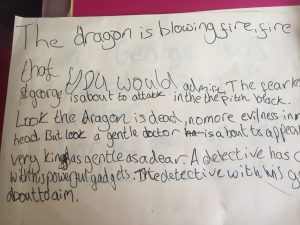 The dragon is blowing fire, fire
that you would admire. The fear
st george is about to attack in the the pitch black.
Look the dragon is dead, no more evilness in
head. But look a gentle doctor is about to appea
very kind as gentle as a dear. A detective has
with his powerful gadgets. The detective with his g
about to aim.